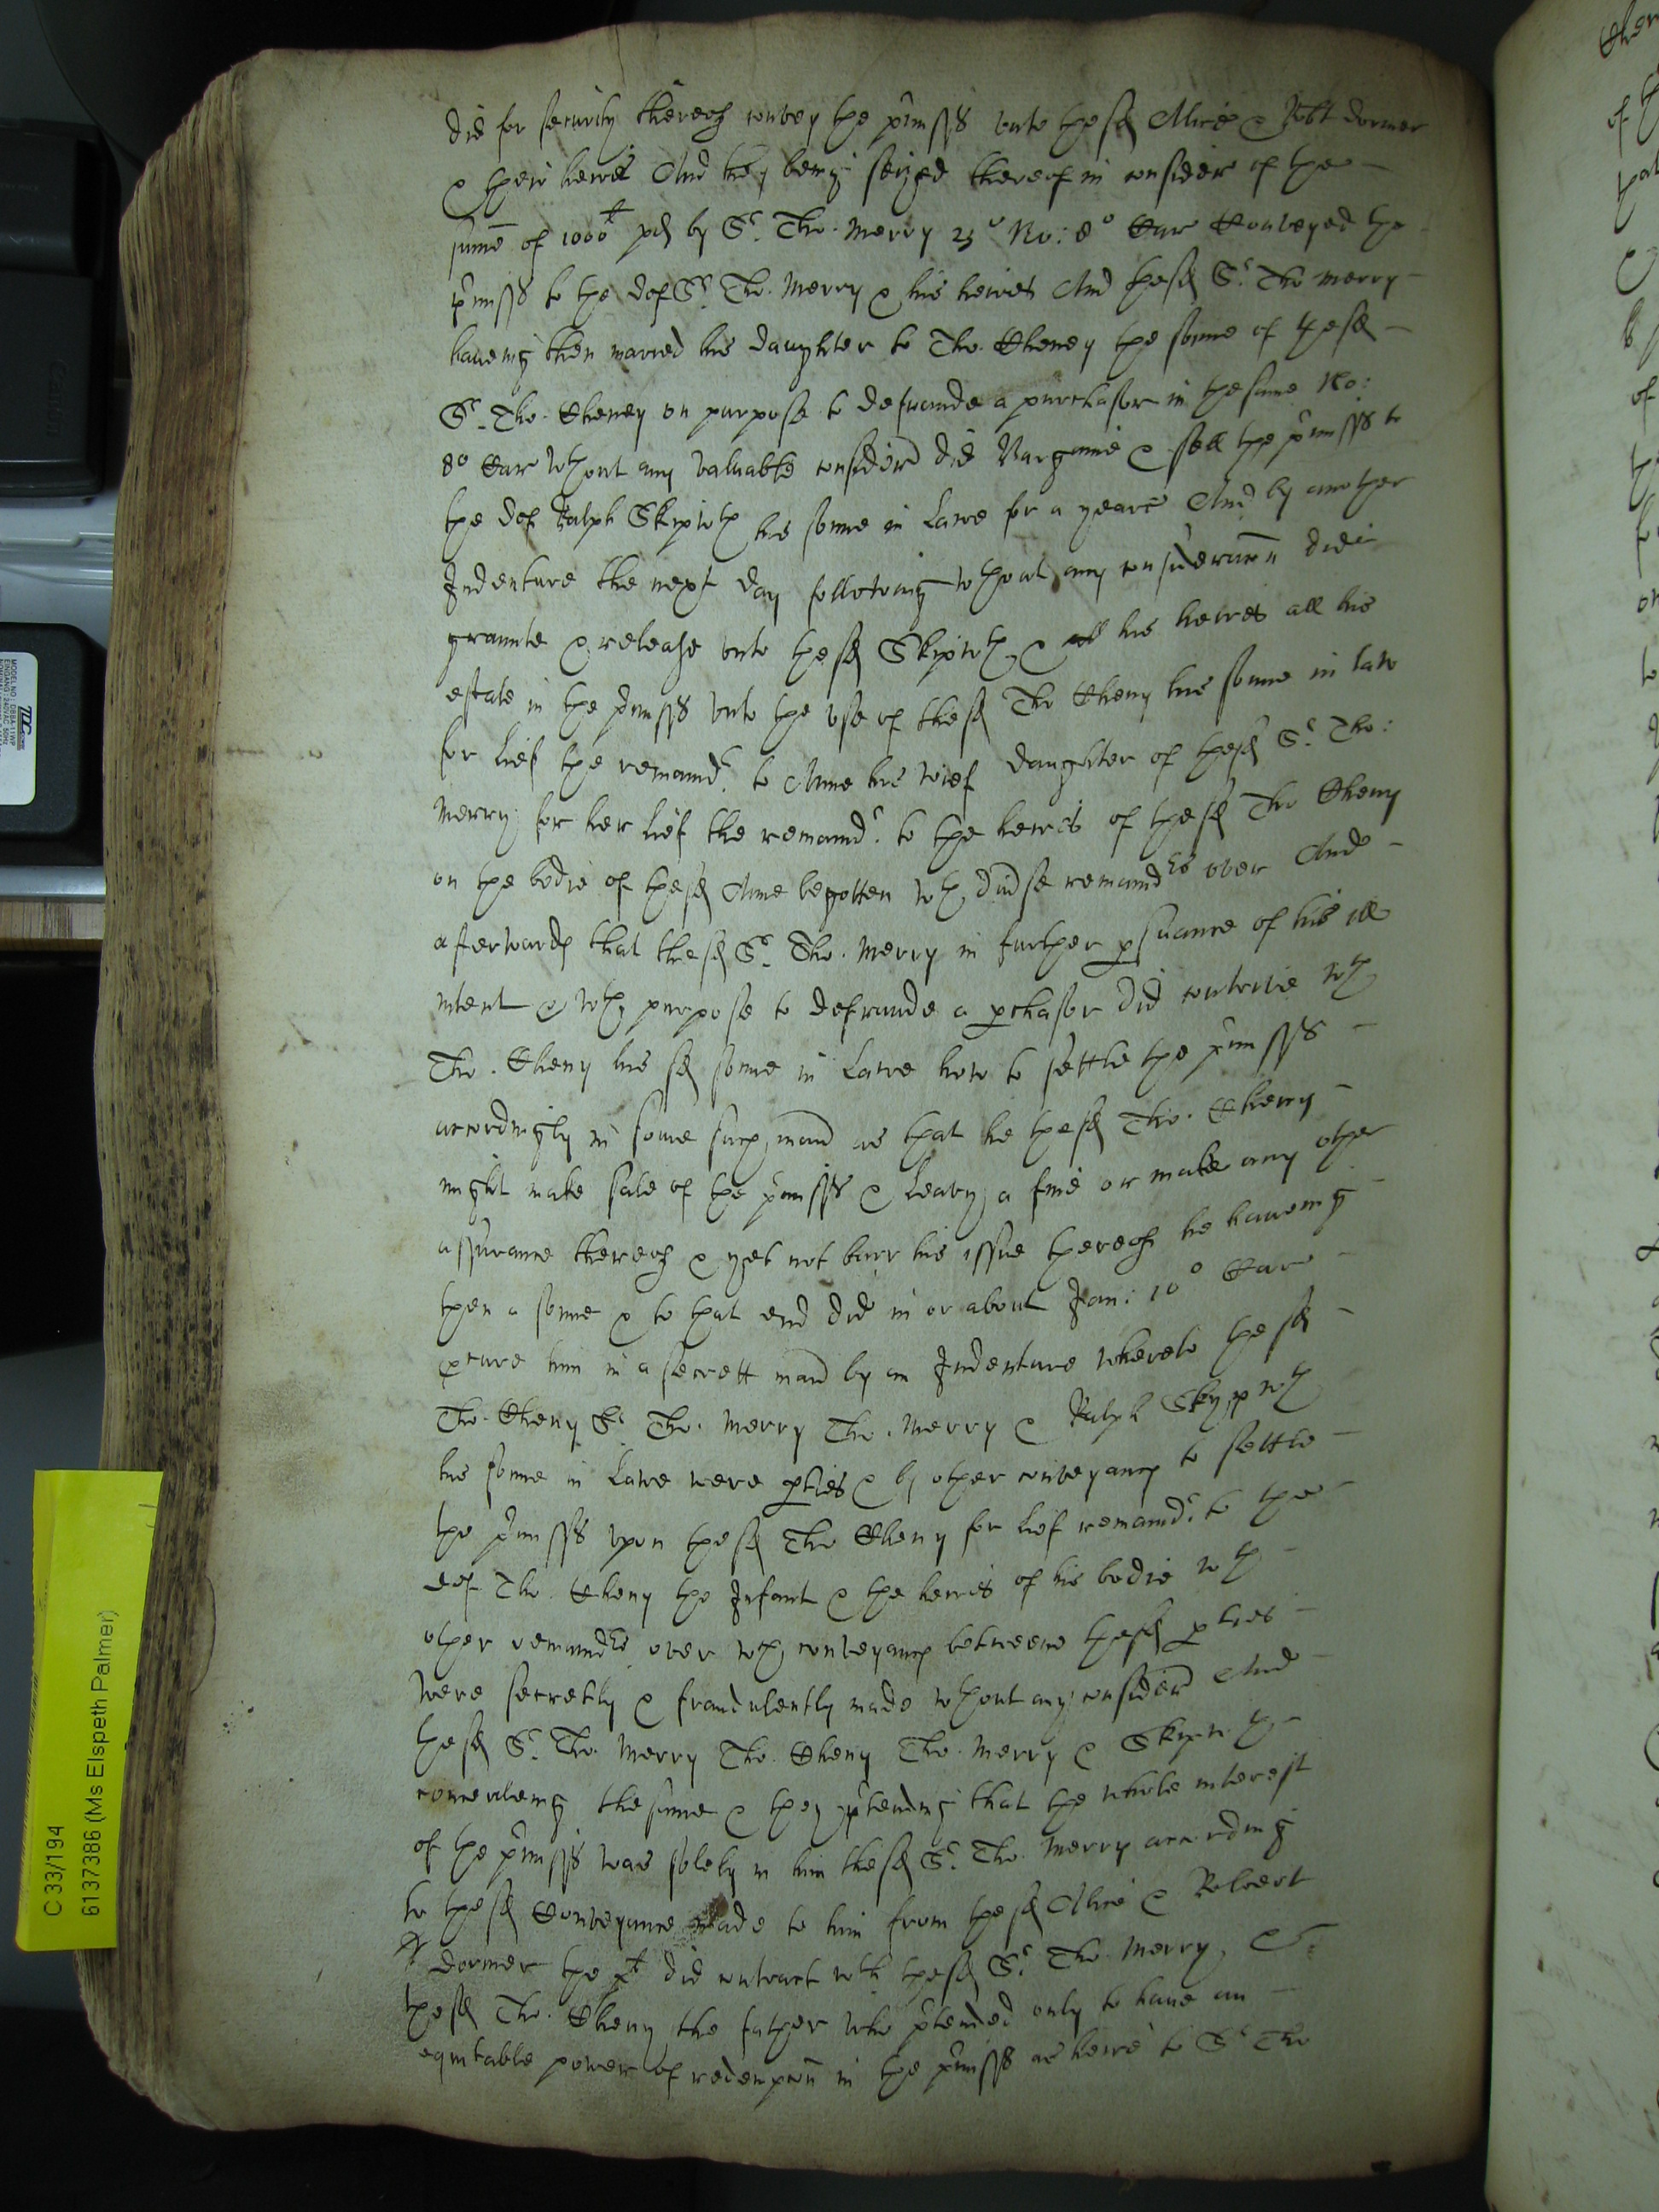 did for security thereof convey the p'miss's unto the sd Alice & Robt Dormer
& their heires And they being seized thereof in consider of the
sume of 1000li pd by Sr. Tho. Merry 23o No: 8o Car Conveyed the
p'miss's to the def Sr. Tho. Merry & his heires And the sd Sr. Tho Merry
haveing then maried his daughter to Tho. Cheney the sonne of the sd
Sr. Tho. Cheney on purpose to defraude a purchasor in the same No:
8o Car wthout any valuable considerd did Bargaine & sell the p'miss's to
the def Ralph Skipwth his sonne in Lawe for a yeare And by another
Indenture the next day following wthout any consideracon did
graunte & release unto the sd Skipwth & his heires all his
estate in the p'miss's unto the use of the sd Tho Cheny his sonne in law
for lief the remaindr. to Anne his wief daughter of the sd Sr. Tho:
Merry for her lief the remaindr. to the heires of the sd Tho Cheny
on the bodie of the sd Anne begotten wth divse remaindrs over And
afterwards that the sd Sr. Tho. Merry in further psuance of his ill
intent & wth purpose to defraude a pchasor did contrive wth
Tho. Cheny his sd sonne in Lawe how to settle the p'miss's
accordingly in some such mann as that he the sd Tho. Cheny
might make sale of the p'miss's & leavy a fine or make any other
assurance thereof & yet not barr his issue thereof he haveing
then a sonne & to that end did in or about Jan: 10o Car
pcure him in a secrett mann by an Indenture whereto the sd
Tho. Cheny Sr Tho. Merry Tho. Merry & Ralph Skypwth
his sonne in Lawe were pties & by other conveyances to settle
the p'miss's upon the sd Tho Cheny for lief remaindr. to the
def Tho. Cheny the Infant & the heires of his bodie wth
other remaindrs over wch conveyances betweene the sd pties
were secretly & fraudulently made wthout any considerd And
the sd Sr. Tho. Merry Tho. Cheny Tho. Merry & Skipwth
concealeing the same & they p'tending that the whole interest
of the p'miss's was solely in him the sd Sr. Tho. Merry according
to the sd Conveyance made to him from the sd Alice & Robert
Dormer the plt did contract wth the sd Sr. Tho. Merry, &
the sd Tho. Cheny the father who p'tended only to have an
equitable power of redempcon in the p'miss's as heire to Sr Tho
C 33/194
6137386 (Ms Elspeth Palmer)